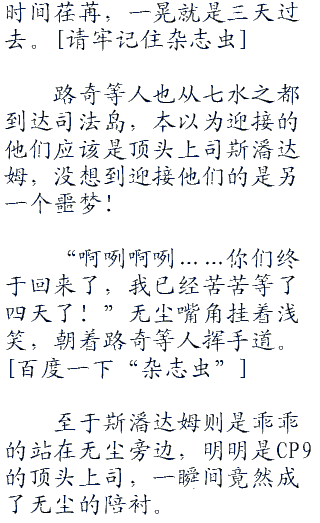 时间荏苒，一晃就是三天过
去。[请牢记住杂志虫]
路奇等人也从七水之都
到达司法岛，本以为迎接的
他们应该是顶头上司斯潘达
姆，没想到迎接他们的是另
一个噩梦！
“啊咧啊咧……你们终
于回来了，我已经苦苦等了
四天了！”无尘嘴角挂着浅
笑，朝着路奇等人挥手道。
[百度一下“杂志虫”]
至于斯潘达姆则是乖乖
的站在无尘旁边，明明是CP9
的顶头上司，一瞬间竟然成
了无尘的陪衬。